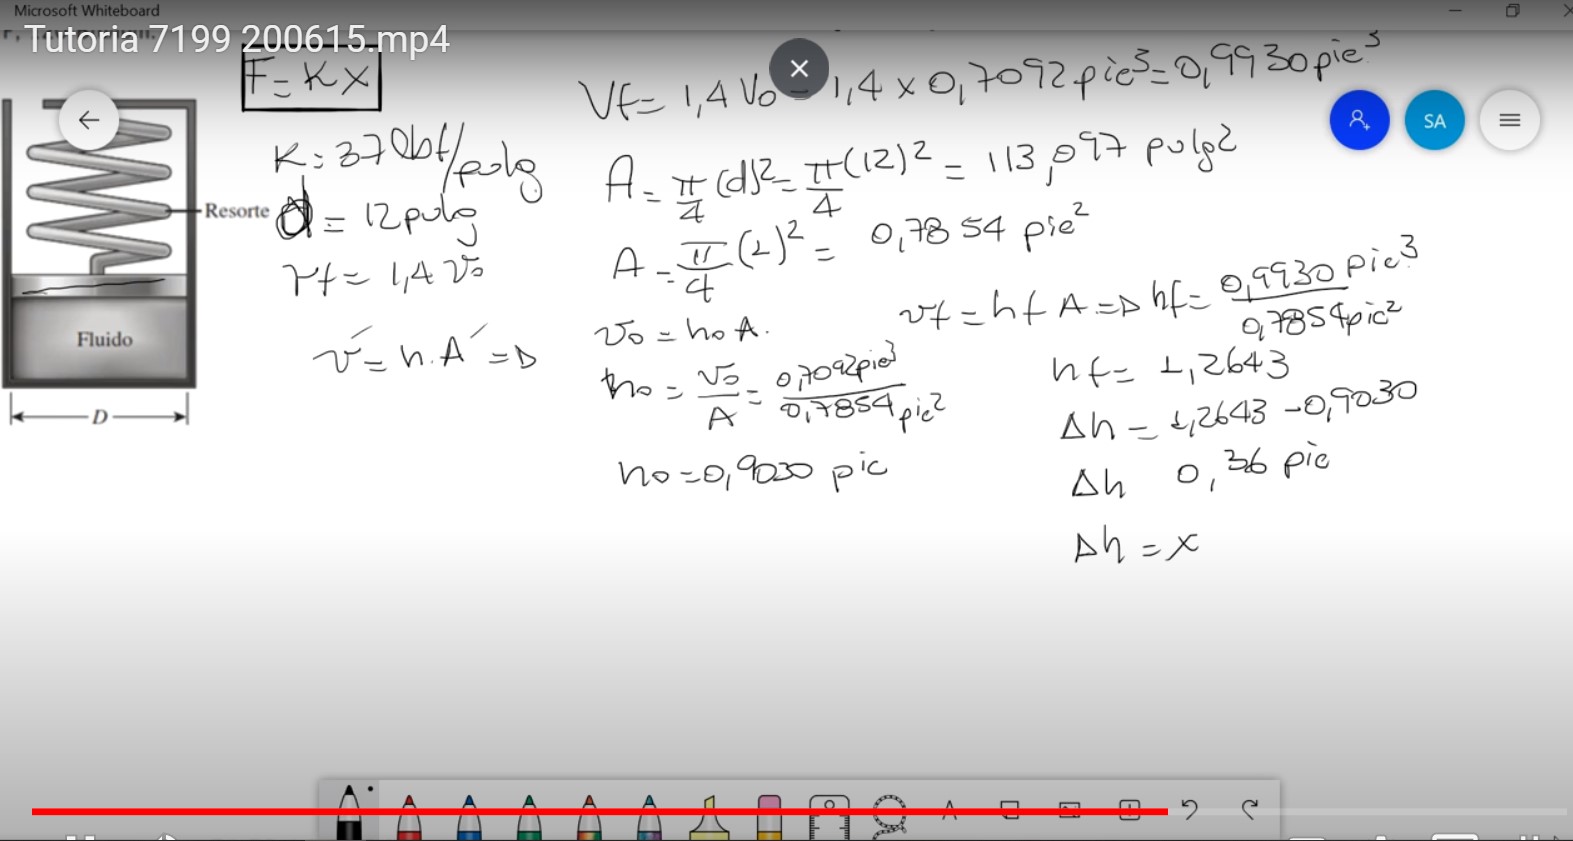 Microsoft Whiteboard
Tutoria 7199 200615.mp4
F = K X
K: 370 lbf/pulg
d = 12 pulg
Vf = 1,4 V0
V = h.A =>
Resorte
Fluido
D
Vf = 1,4 V0 = 1,4 x 0,7092 pie³ = 0,9930 pie³
A = π/4 (d)² = π/4 (12)² = 113,097 pulg²
A = π/4 (1)² = 0,7854 pie²
V0 = h0 A.
h0 = V0/A = 0,7092 pie³/0,7854 pie²
h0 = 0,9030 pie
Vf = hf A => hf = 0,9930 pie³/0,7854 pie²
hf = 1,2643
Δh = 1,2643 - 0,9030
Δh 0,36 pie
Δh = x
SA